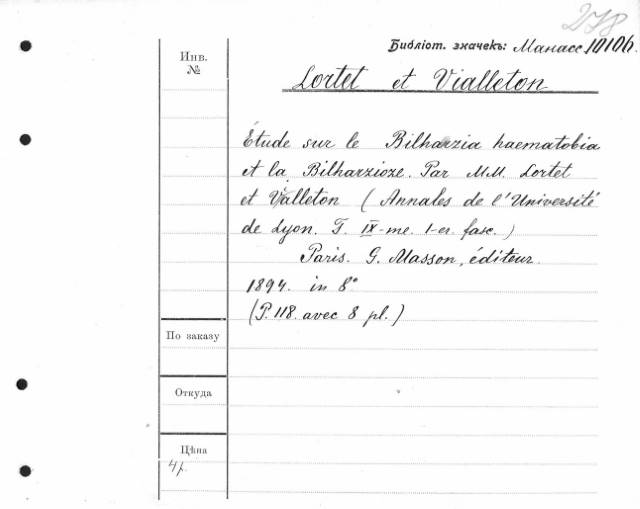 278
Библіот. значекъ: Манасс. 10106.
Инв.
№
Lortet et Vialleton
Étude sur le Bilharzia haematobia
et la Bilharzioze. Par MM. Lortet
et Vialleton (Annales de l'Université
de Lyon. T. IX-me. 1-er. fasc.)
Paris. G. Masson, éditeur.
1894. in 8°
(P. 118. avec 8 pl.)
По заказу
Откуда
Цѣна
4р.